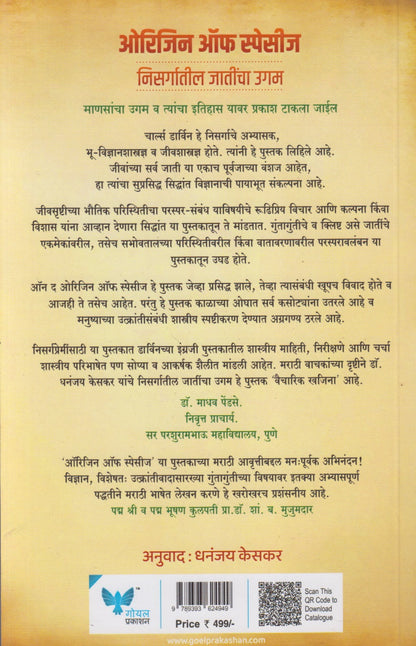 ओरिजिन ऑफ स्पेसीज
निसर्गातील जातींचा उगम
माणसांचा उगम व त्यांचा इतिहास यावर प्रकाश टाकला जाईल
चार्ल्स डार्विन हे निसर्गाचे अभ्यासक,
भू-विज्ञानशास्त्रज्ञ व जीवशास्त्रज्ञ होते. त्यांनी हे पुस्तक लिहिले आहे.
जीवांच्या सर्व जाती या एकाच पूर्वजाच्या वंशज आहेत,
हा त्यांचा सुप्रसिद्ध सिद्धांत विज्ञानाची पायाभूत संकल्पना आहे.
जीवसृष्टीच्या भौतिक परिस्थितीचा परस्पर-संबंध याविषयीचे रूढिप्रिय विचार आणि कल्पना किंवा
विश्वास यांना आव्हान देणारा सिद्धांत या पुस्तकातून ते मांडतात. गुंतागुंतीचे व क्लिष्ट असे जातींचे
एकमेकांवरील, तसेच सभोवतालच्या परिस्थितीवरील किंवा वातावरणावरील परस्परावलंबन या
पुस्तकातून उघड होते.
ऑन द ओरिजिन ऑफ स्पेसीज हे पुस्तक जेव्हा प्रसिद्ध झाले, तेव्हा त्यासंबंधी खूपच विवाद होते व
आजही ते तसेच आहेत. परंतु हे पुस्तक काळाच्या ओघात सर्व कसोट्यांना उतरले आहे व
मनुष्याच्या उत्क्रांतीसंबंधी शास्त्रीय स्पष्टीकरण देण्यात अग्रगण्य ठरले आहे.
निसर्गप्रेमींसाठी या पुस्तकात डार्विनच्या इंग्रजी पुस्तकातील शास्त्रीय माहिती, निरीक्षणे आणि चर्चा
शास्त्रीय परिभाषेत पण सोप्या व आकर्षक शैलीत मांडली आहेत. मराठी वाचकांच्या दृष्टीने डॉ.
धनंजय केसकर यांचे निसर्गातील जातींचा उगम हे पुस्तक 'वैचारिक खजिना' आहे.
डॉ. माधव पेंडसे.
निवृत्त प्राचार्य.
सर परशुरामभाऊ महाविद्यालय, पुणे
'ऑरिजिन ऑफ स्पेसीज' या पुस्तकाच्या मराठी आवृत्तीबद्दल मनःपूर्वक अभिनंदन!
विज्ञान, विशेषतः उत्क्रांतीवादासारख्या गुंतागुंतीच्या विषयावर इतक्या अभ्यासपूर्ण
पद्धतीने मराठी भाषेत लेखन करणे हे खरोखरच प्रशंसनीय आहे.
पद्म श्री व पद्म भूषण कुलपती प्रा.डॉ. शां. ब. मुजुमदार
अनुवाद : धनंजय केसकर
गोयल
प्रकाशन
TM
9 789393 624949
Price ₹ 499/-
Scan This
QR Code to
Download
Catalogue
www.goelprakashan.com